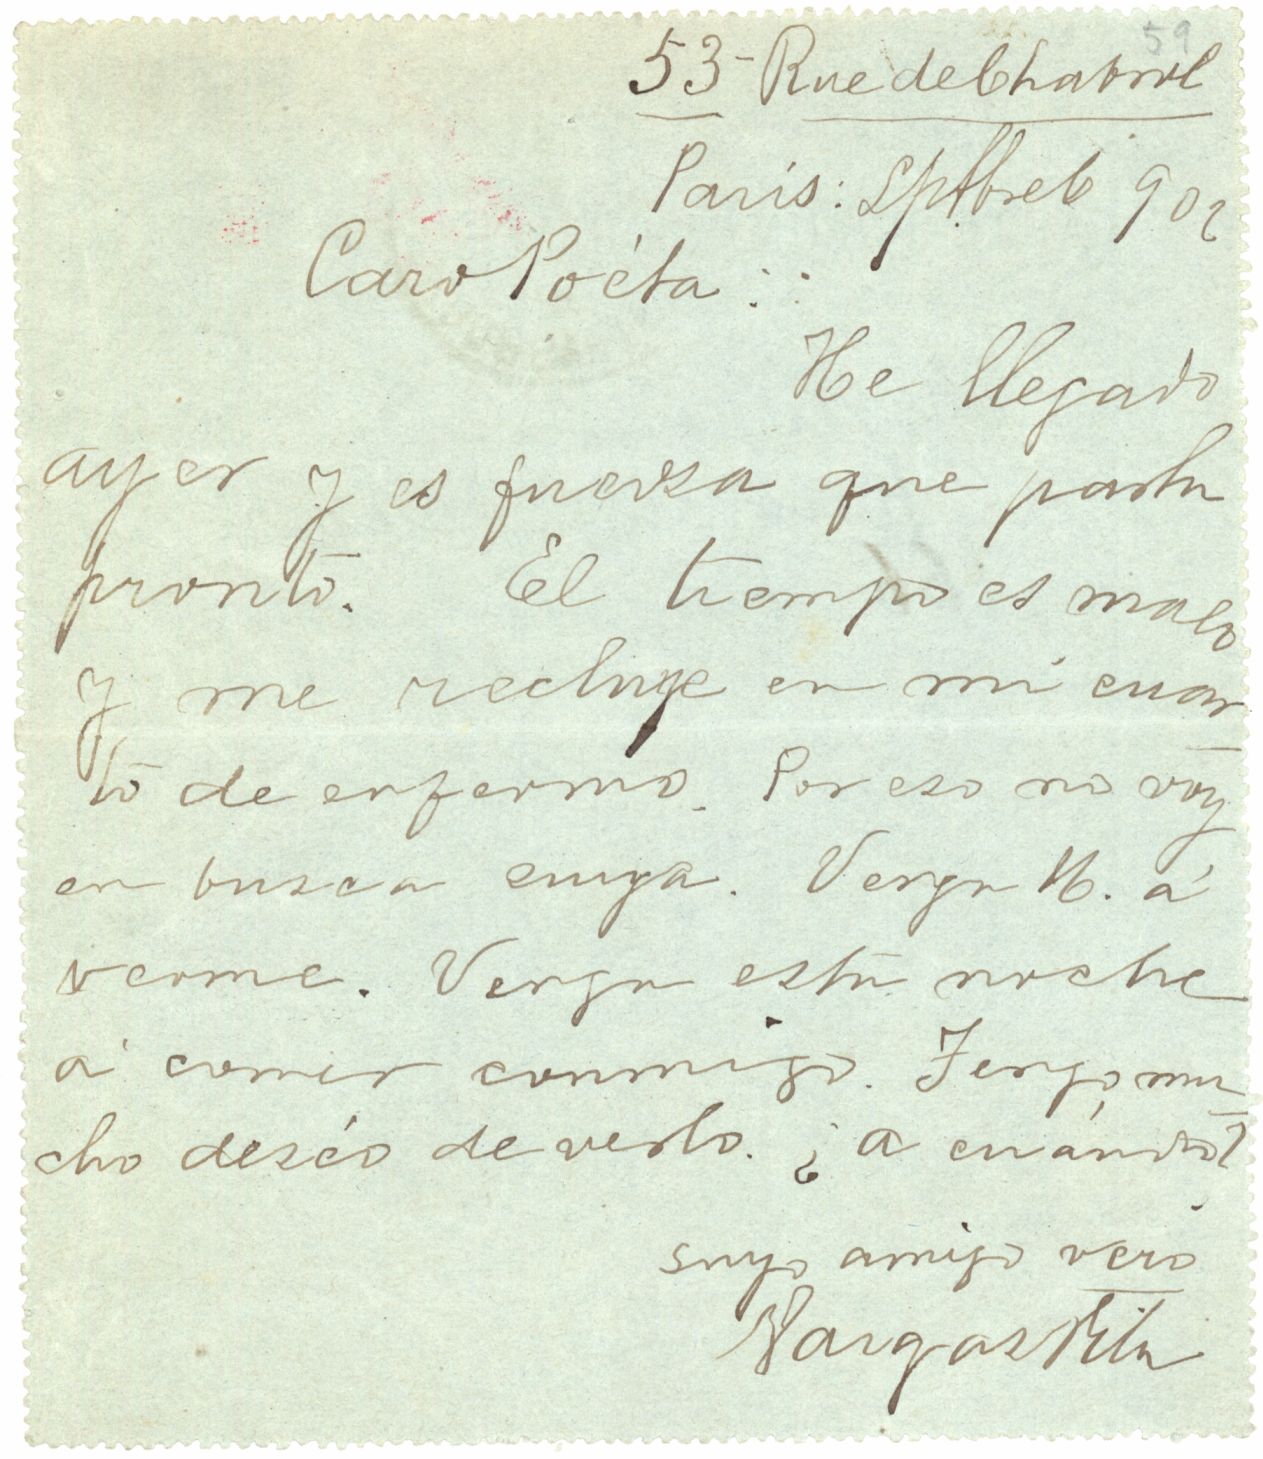 59
53- Rue de Chabrol
París: Sptbre 6 902
Caro Poéta:
He llegado
ayer y es fuersa que parta
pronto. El tiempo es malo
y me recluye en mi cuar
to de enfermo. Por eso no voy
en busca suya. Venga U. á
verme. Venga esta noche
á comer conmigo. Tengo mu
cho deséo de verlo. ¿a cuándo?
suyo amigo vero
Vargas Vila